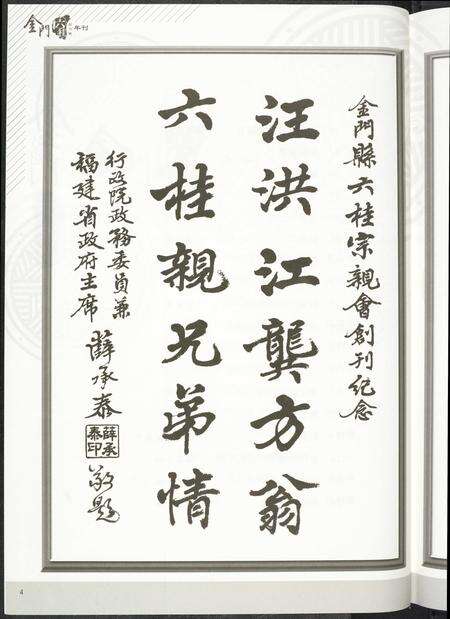 金門
年刊
金門縣六桂宗親會創刊紀念
汪洪江龔方翁
六桂親兄弟情
行政院政務委員兼
福建省政府主席
薛承泰
薛承泰印
敬題
4